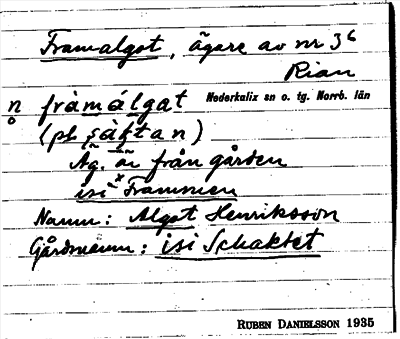 Framalgot, ägare av nr 3⁶
Rian
n framálgat Nederkalix sn o. tg. Norrb. län
(pl. šàktan)
Äg. är från gården
isi ˣFrammien
Namn: Algot Henriksson
Gårdnamn: isi Schaktet
RUBEN DANIELSSON 1935